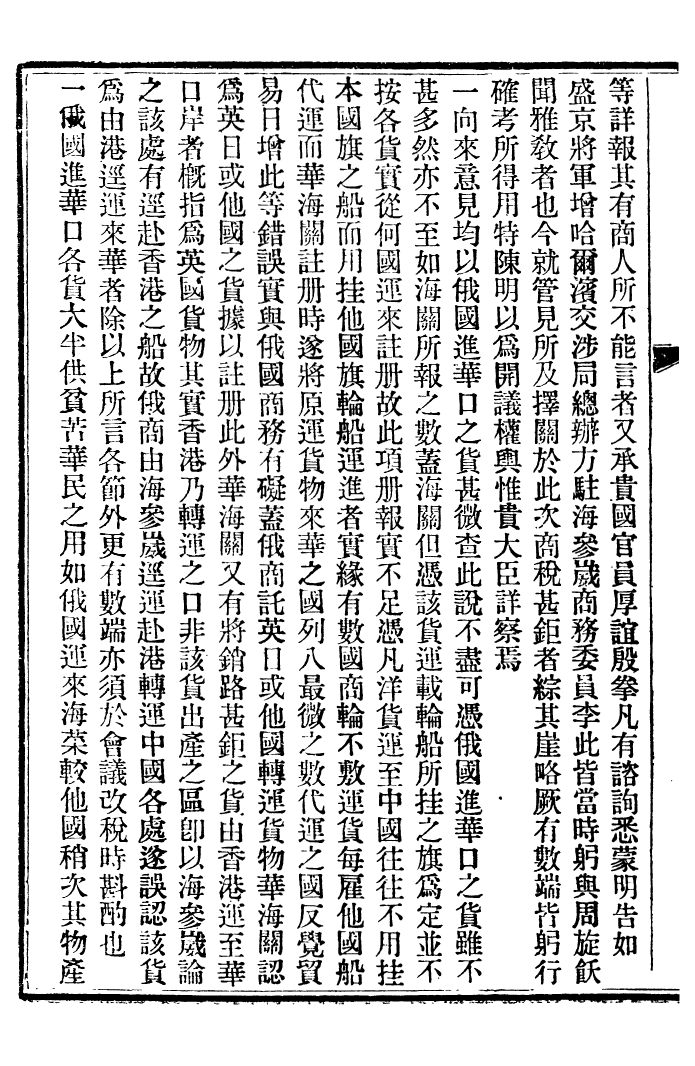 等詳報其有商人所不能言者又承貴國官員厚誼殷拳凡有諮詢悉蒙明告如
盛京將軍增哈爾濱交涉局總辦方駐海參崴商務委員李此皆當時躬與周旋飫
聞雅敎者也今就管見所及擇關於此次商稅甚鉅者綜其崖略厥有數端皆躬行
確考所得用特陳明以爲開議權輿惟貴大臣詳察焉
一向來意見均以俄國進華口之貨甚微查此說不盡可憑俄國進華口之貨雖不
甚多然亦不至如海關所報之數蓋海關但憑該貨運載輪船所挂之旗爲定並不
按各貨實從何國運來註册故此項册報實不足憑凡洋貨運至中國往往不用挂
本國旗之船而用挂他國旗輪船運進者實緣有數國商輪不敷運貨每雇他國船
代運而華海關註册時遂將原運貨物來華之國列八最微之數代運之國反覺貿
易日增此等錯誤實與俄國商務有礙蓋俄商託英日或他國轉運貨物華海關認
爲英日或他國之貨據以註册此外華海關又有將銷路甚鉅之貨由香港運至華
口岸者槪指爲英國貨物其實香港乃轉運之口非該貨出產之區卽以海參崴論
之該處有逕赴香港之船故俄商由海參崴逕運赴港轉運中國各處遂誤認該貨
爲由港逕運來華者除以上所言各節外更有數端亦須於會議改稅時斟酌也
一俄國進華口各貨大半供貧苦華民之用如俄國運來海菜較他國稍次其物產